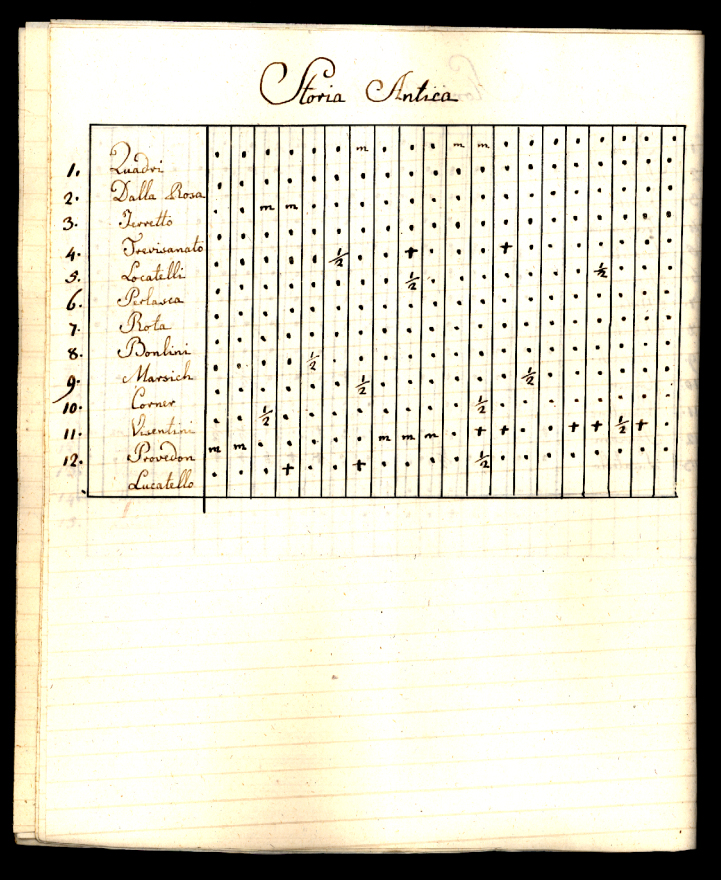 Storia Antica
1. Quadri m m m
2. Dalla Rosa
3. Ferretto m m
4. Trevisanato
5. Locatelli ½ + +
6. Perlasca ½ ½
7. Rota
8. Bonlini
9. Marsich ½
10. Corner ½ ½
11. Visentini ½ ½
12. Provedon m m m m m + + + + ½ +
Lucatello + + ½